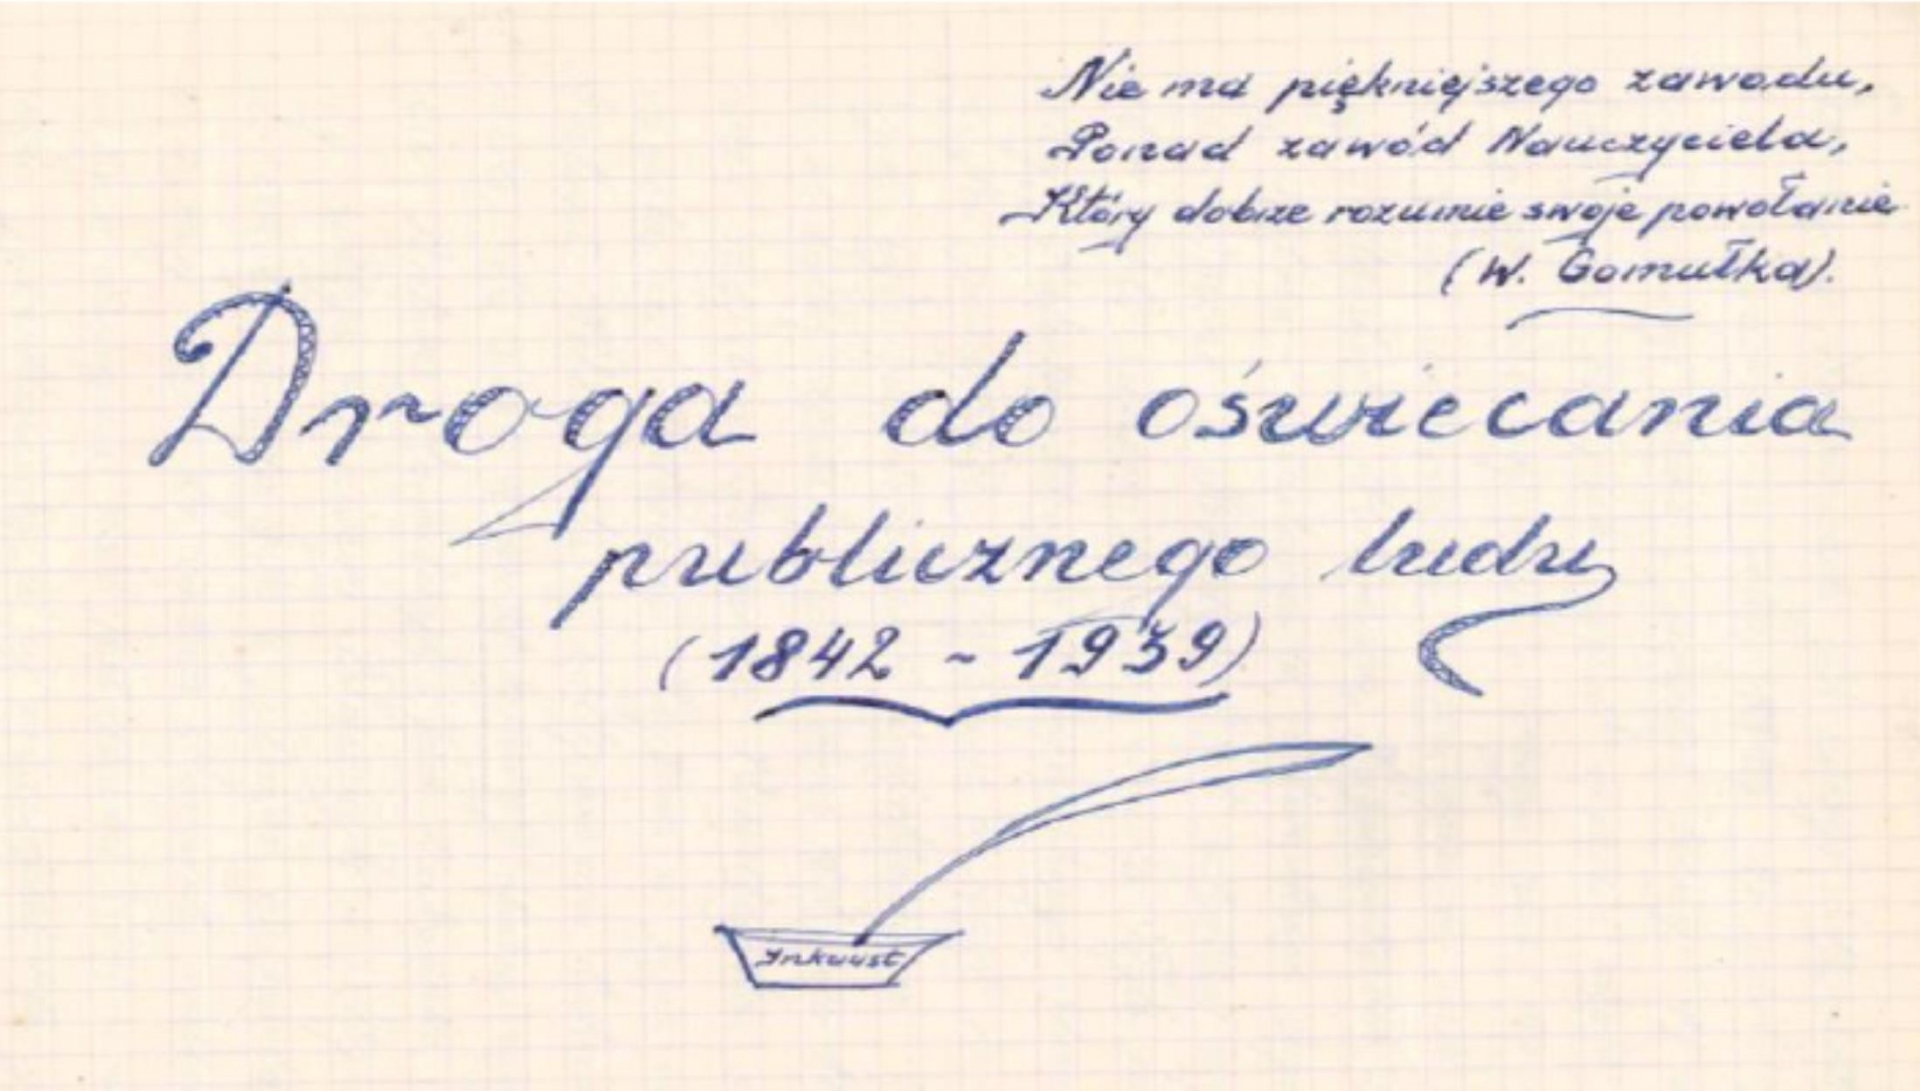 Nie ma piękniejszego zawodu,
Ponad zawód Nauczyciela,
Który dobrze rozumie swoje powołanie
(W. Gomułka).
Droga do oświecania
publicznego ludu
(1842 - 1939)
Inkaust